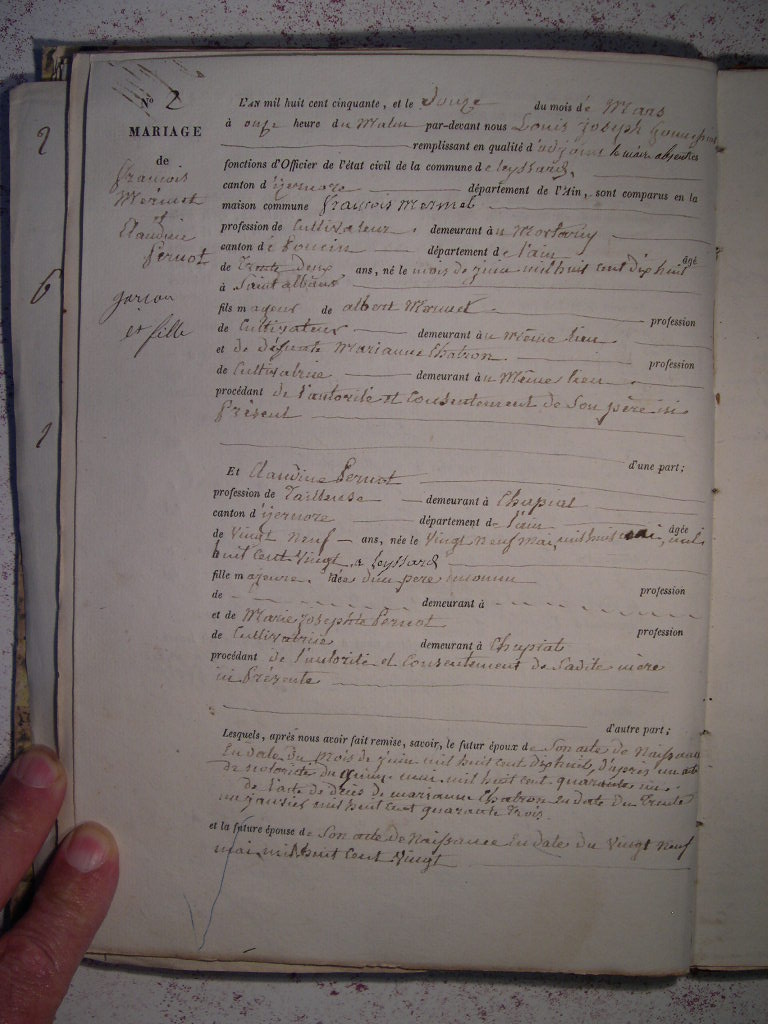 2
6
1
N° 2
MARIAGE
de
françois
Mermet
et
Claudine
Pernot
garçon
et fille
L'AN mil huit cent cinquante, et le Douze du mois de Mars
à onze heure du Matin par-devant nous Louis Joseph
remplissant en qualité d'adjoint le maire absent les
fonctions d'Officier de l'état civil de la commune de Leyssard,
canton d'izernore département de l'Ain, sont comparus en la
maison commune françois Mermet
profession de Cultivateur, demeurant à
canton de Poncin département de l'ain âgé
de Trente Deux ans, né le mois de juin mil huit cent dix huit
à Saint alban
fils majeur de albert Mermet profession
de Cultivateur demeurant à u Même lieu
et de défunte Marianne Chabron profession
de Cultivatrice demeurant à u Même lieu.
procédant de l'autorité et Consentement de Son père ici
Présent
d'une part;
Et Claudine Pernot
profession de Tailleuse demeurant à Chapiat
canton d'izernore département de l'ain âgée
de Vingt Neuf ans, née le Vingt Neuf Mai, mil
huit cent Vingt, a Leyssard
fille majeure. Née d'un pere inconnu profession
de demeurant à
et de Marie Josephte Pernot profession
de Cultivatrice demeurant à Chapiat
procédant de l'autorité et Consentement de Sadite mère
ici Présente
d'autre part;
Lesquels, après nous avoir fait remise, savoir, le futur époux de Son acte de Naissance
En date du Mois de juin mil huit cent dix huit, d'après un acte
de notoriété du mai mil huit cent quarante
de l'acte de décès de mariann Chabron en date du Trente
un janvier mil huit cent quarante Trois.
et la future épouse de Son acte de Naissance en date du Vingt Neuf
mai mil huit Cent Vingt